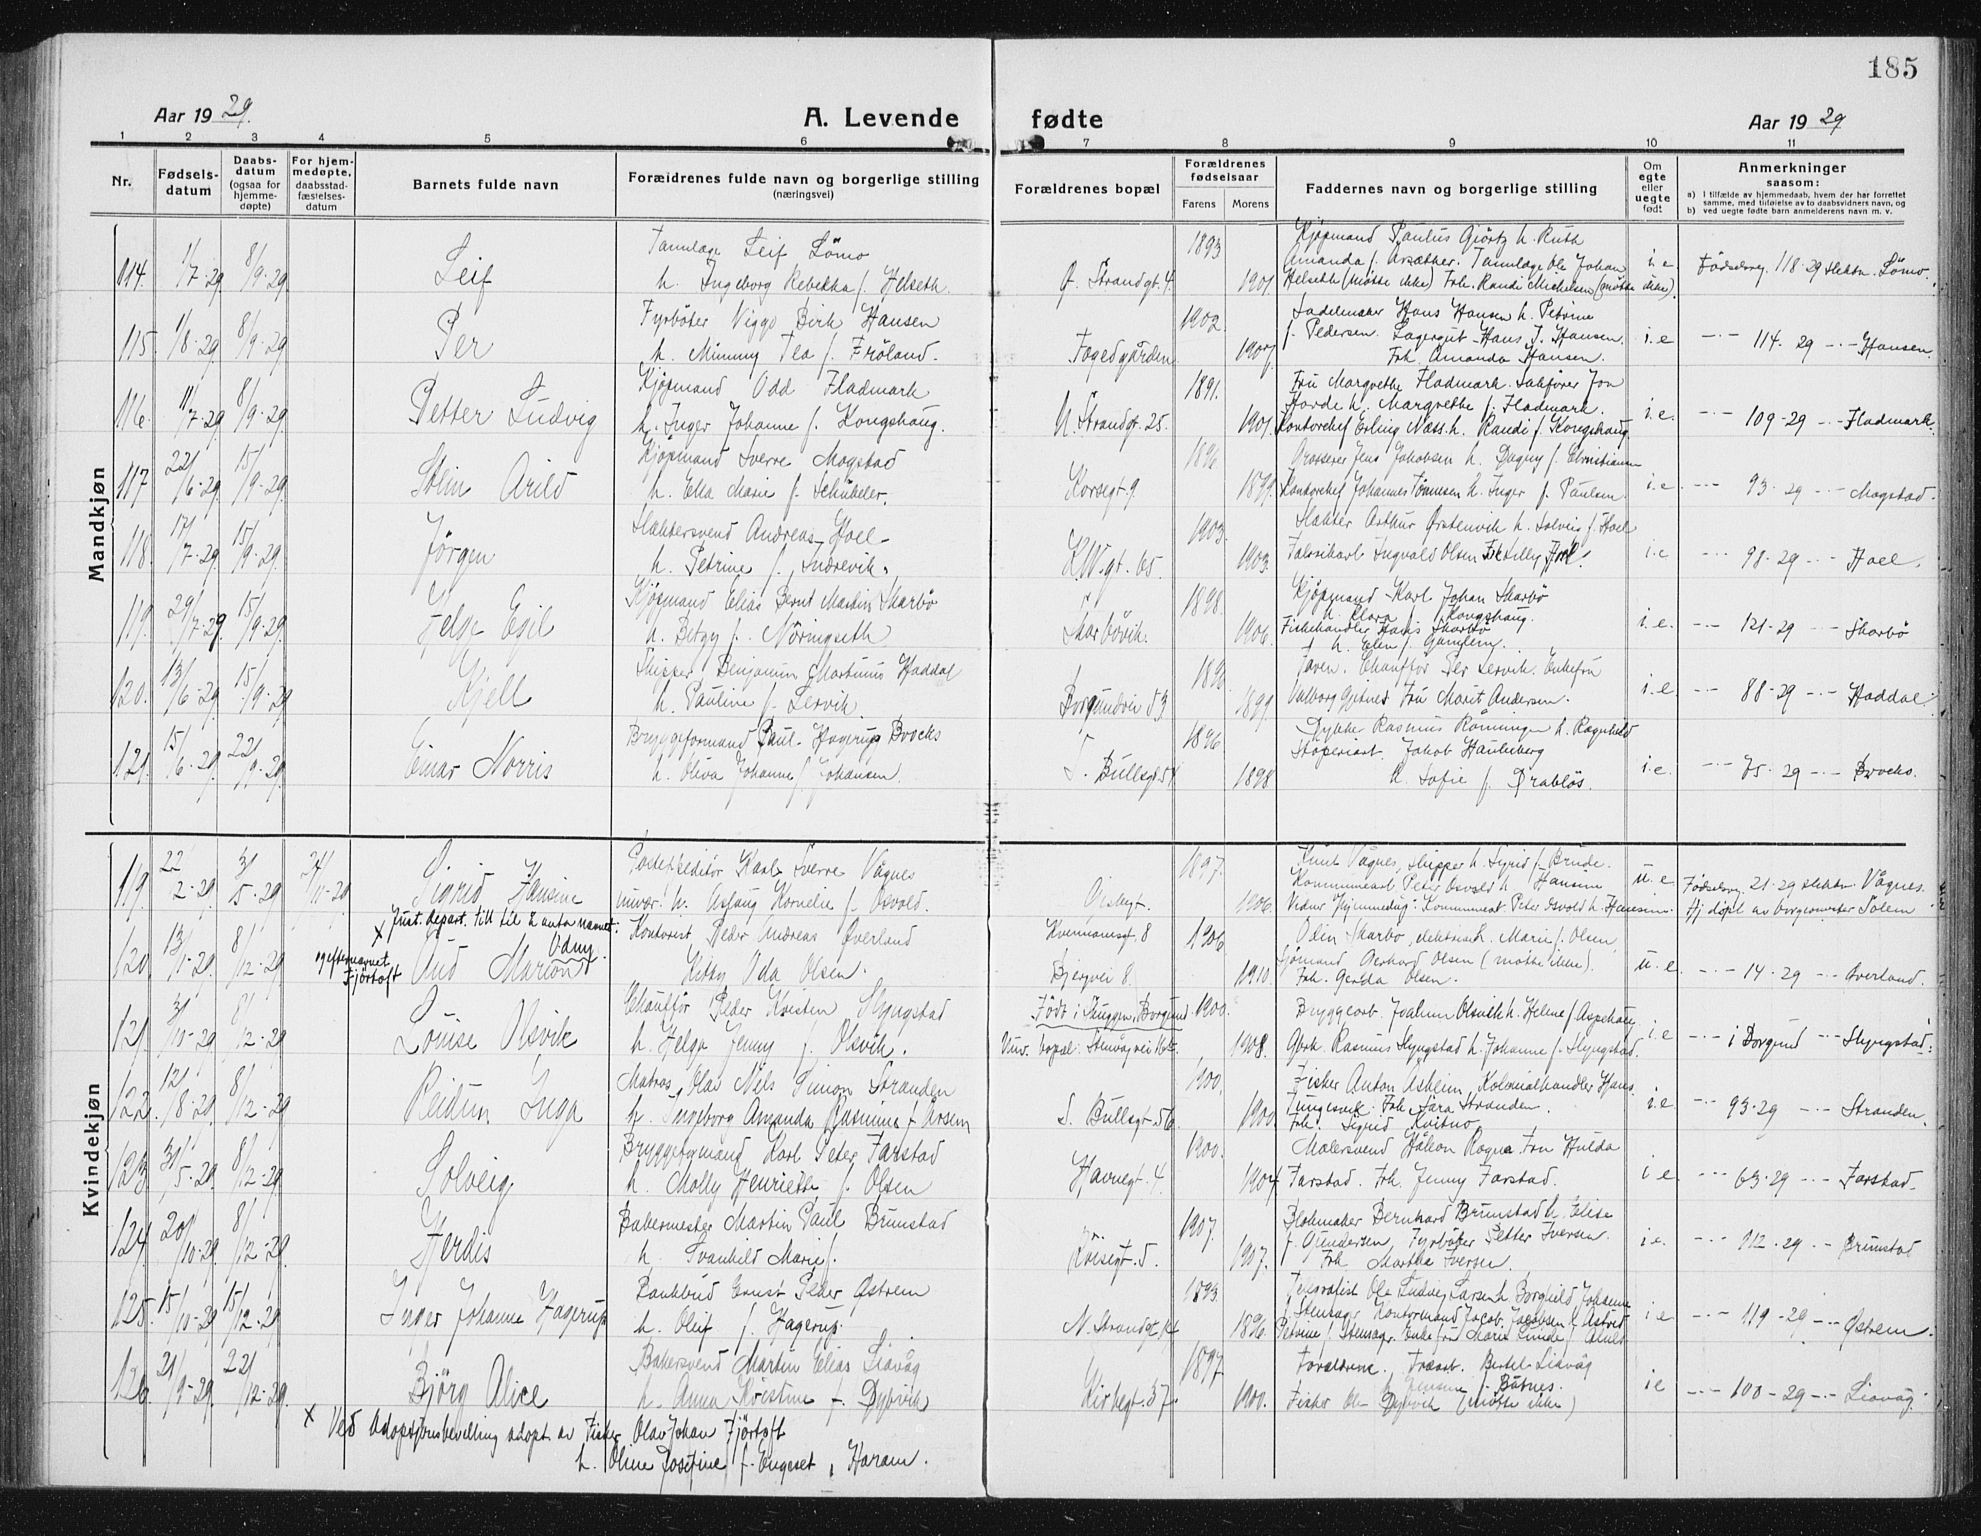 185
Aar 1929.
A. Levende fødte
Aar 1929
1 2 3 4 5 6 7 8 9 10 11
Nr.
Fødsels-
datum
Daabs-
datum
(ogsaa for
hjemme-
døpte)
For hjem-
medøpte,
daabsstad-
fæstelses-
datum
Barnets fulde navn
Forældrenes fulde navn og borgerlige stilling
(næringsvei)
Forældrenes bopæl
Forældrenes
fødselsaar
Farens Morens
Faddernes navn og borgerlige stilling
Om
egte
eller
uegte
født
Anmerkninger
saasom:
a) I tilfælde av hjemmedaab, hvem der har forrettet
samme, med tilføielse av to daabsvidners navn, og
b) ved uegte fødte barn anmelderens navn m. v.
Mandkjøn
114. 1/7-29 8/9-29 Leif
Tannlæge Leif Lömo
h. Ingeborg Rebekka f. Helseth
Ø. Strandgt. 4 1893 1901
Kjøpmand Paulus Gjörtz h. Ruth
Amanda f. Arsæther. Tannlæge Ole Johan
Helseth (møtte ikke) Frk. Randi Michelsen (møtte ikke).
i.e Fødselsreg. 118-29 Lömo.
115. 1/8-29 8/9-29 Per
Fyrböter Viggo Birk Hansen
h. Mimmy Tea f. Fröland.
Fogedgården 1902 1907
Sadelmaker Hans Hansen h. Petrine
f. Pedersen. Lagergut Hans J. Hansen.
Frk. Amanda Hansen.
i.e -"- 114-29 -"- Hansen
116. 11/7-29 8/9-29 Petter Ludvig
Kjøpmand Odd Fladmark
h. Inger Johanne f. Kongshaug.
N. Strandgt. 25. 1891. 1901
Fru Margrethe Fladmark. Sakfører Jon
Hovde h. Margrethe f. Fladmark.
Kontorchef Erling Næss h. Randi f. Kongshaug
i.e. -"- 109-29 -"- Fladmark.
117 22/6-29 15/9-29 Stein Arild
Kjøpmand Sverre Mogstad
h. Ella Marie f. Schübeler.
Korsegt. 9 1896 1899
Grosserer Jens Jakobsen h. Dagny f. Christiansen
Kontorchef Johannes Tønnesen h. Inger f. Paulsen
i.e. -"- 93-29 -"- Mogstad.
118. 17/7-29 15/9-29 Jörgen
Slaktersvend Andreas Hoel
h. Petrine f. Indrevik.
K.W.gt. 65. 1903. 1903.
Slakter Arthur Ørstenvik h. Solveig f. Hoel
Fabrikarb Ingvald Olsen Frk Lilly Hoel.
i.e -"- 98-29 -"- Hoel.
119. 29/7-29 15/9-29 Helge Egil
Kjøpmand Elias Bernt Martin Skarbö
h. Betzy f. Nöringseth
Skarbövik. 1898. 1906.
Kjøpmand Karl Johan Skarbö
h. Klara f. Kongshaug.
Fiskehandler Hans Skarbö
h. Elen f. Gamlem.
i.e. -"- 121-29 -"- Skarbö
120. 13/6-29 15/9-29 Kjell
Skipper Benjamin Martinus Haddal
h. Pauline f. Lervik
Borgundvei 53 1896 1899.
Faren. Chauffør Per Lervik. Enkefru
Valborg Gjetnes Fru Marit Andersen.
i.e -"- 88-29 -"- Haddal
121. 15/6-29 22/9-29 Einar Norris
Bryggeformand Paul Hagerup Brochs
h. Oliva Johanne f. Johansen.
T. Bullsgt. 54 1896 1898
Dykker Rasmus Rönningen h. Ragnhild
Jakob Haukeberg
h. Sofie f. Drabløs.
i.e. -"- 75-29 -"- Brochs.
Kvindekjøn
119. 22/2-29 3/5-29 24/11-29 Sigrid Hansine
Postexpeditör Karl Sverre Vågnes
h. Aslaug Kornelie f. Osvold.
1897. 1906.
Knut Vågnes, skipper h. Sigrid f. Brude.
Kommunearb Peter Osvold h Hansine
u.e Fødselsreg. 21-29 Vågnes.
Hj. døpt av borgermester Solem
x Just. depart. till til å anta navnet
Udny
og efternavnet
Fjörtoft
120 13/1-29 8/12-29 Aud Marion
Kontorist Peder Andreas Överland
Kitty Oda Olsen.
Kvennamsgt. 8
Bjergvei 8. 1906 1910.
Odin Skarbo, elektriker h. Marie f. Olsen
Sjömand Gerhard Olsen (møtte ikke).
Frk. Gerda Olsen.
u.e. -"- 14-29 -"- Överland.
121. 31/10-29 8/12-29 Louise Olsvik
Chauffør Peder Karsten Slyngstad
h. Helga Jenny f. Olsvik.
Født i Skuggen, Borgund.
Nuv. bopæl: Stenvågvei 1900. 1908.
Bryggearb. Joakim Olsvik h. Helene f. Aspehaug
Gbrk. Rasmus Slyngstad h. Johanne f. Slyngstad.
i.e -"- i Borgund -"- Slyngstad.
122. 12/8-29 8/12-29 Reidun Inga
Matros Olav Nils Simon Stranden
h. Ingeborg Amanda Rasmine f. Larsen
T. Bullsgt. 56 1900. 1900
Fisker Anton Asheim, Kolonialhandler Hans
Tungesvik. Frk. Sara Stranden.
Frk. Sigrid Kvitno
i.e -"- 93-29 -"- Stranden.
123. 31/5-29 8/12-29 Solveig
Bryggeformand Karl Peter Farstad
h. Molly Henriette f. Olsen
Havnegt. 4 1900. 1904
Malersvend Håkon Rogne Fru Hulda
Farstad. Frk. Jenny Farstad.
i.e -"- 63-29 -"- Farstad.
124. 20/10-29 8/12-29 Herdis
Bakermester Martin Paul Brunstad
h. Svanhild Marie f.
Kirsegt. 5. 1907. 1907.
Blokmaker Bernhard Brunstad h. Elise
f. Gundersen, Fyrböter Petter Iversen.
Frk Martha Iversen.
i.e. -"- 112-29 -"- Brunstad
125. 15/10-29 15/12-29 Inger Johanne Hagerup
Bankbud Ernst Peder Østrem
h. Oluf f. Hagerup.
N. Strandgt. 14 1893. 1896.
Telegrafist Ole Ludvig Larsen h Borghild Johanne
f. Stensager Kontormand Jacob Jacobsen h. Astrid
Petrine f. Stensagr. Enkefru Marie Lunde f. Alnes
i.e -"- 119-29 -"- Østrem.
126. 21/9-29 22/12-29 Björg Alice
Bakersvend Martin Elias Liavåg
h. Anna Kristine f. Dybvik
Kirkegt. 37. 1897 1900.
Forældrene. Bertel Liavåg
h Jensine f. Båtnes.
Fisker Ole Dybvik (møtte ikke)
i.e -"- 100-29 -"- Liavåg
x Ved Adopsjonsbevilling adopt. av Fisker Olav Johan Fjörtoft
h. Oline Josefine f. Engeset, Haram.